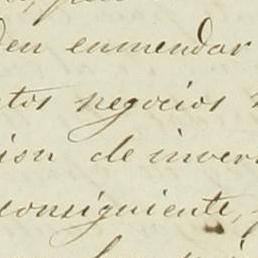 den enmendar
ntos negocios
ion de inver
consiguiente,